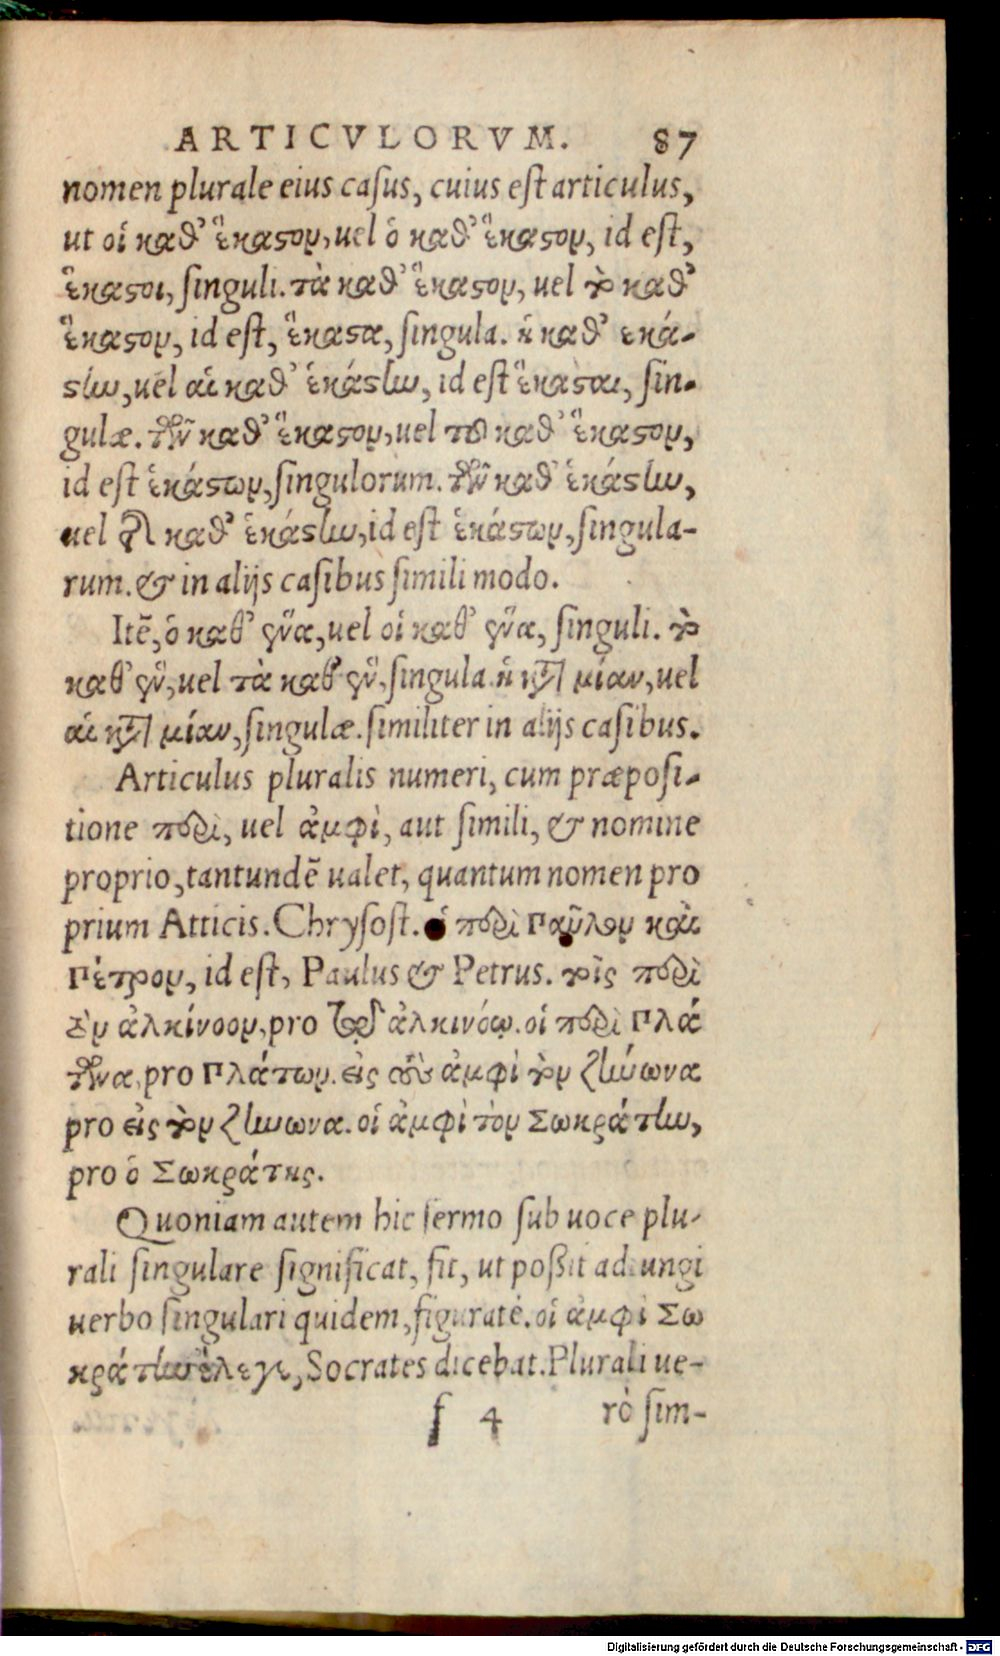 ARTICVLORVM. 87
nomen plurale eius casus, cuius est articulus,
ut οἱ καθ᾽ ἕκαστον, uel ὁ καθ᾽ ἕκαστον, id est,
ἕκαστοι, singuli. τὰ καθ᾽ ἕκαστον, uel τὸ καθ᾽
ἕκαστον, id est, ἕκαστα, singula. ἡ καθ᾽ ἑκά-
στην, uel αἱ καθ᾽ ἑκάστην, id est ἕκασται, sin-
gulæ. τῶν καθ᾽ ἕκαστον, uel τοῦ καθ᾽ ἕκαστον,
id est ἑκάστων, singulorum. τῶν καθ᾽ ἑκάστην,
uel τῆς καθ᾽ ἑκάστην, id est ἑκάστων, singula-
rum. & in alijs casibus simili modo.
Itē, ὁ καθ᾽ ἕνα, uel οἱ καθ᾽ ἕνα, singuli. τὸ
καθ᾽ ἓν, uel τὰ καθ᾽ ἓν, singula. ἡ κατὰ μίαν, uel
αἱ κατὰ μίαν, singulæ. similiter in alijs casibus.
Articulus pluralis numeri, cum præposi-
tione περὶ, uel ἀμφὶ, aut simili, & nomine
proprio, tantundē ualet, quantum nomen pro
prium Atticis. Chrysost. οἱ περὶ Παῦλον καὶ
Πέτρον, id est, Paulus & Petrus. τοῖς περὶ
τὸν ἀλκίνοον, pro τῷ ἀλκινόῳ. οἱ περὶ Πλά
τωνα, pro Πλάτων. εἰς τοὺς ἀμφὶ τὸν Ζήνωνα
pro εἰς τὸν Ζήνωνα. οἱ ἀμφὶ τὸν Σωκράτην,
pro ὁ Σωκράτης.
Quoniam autem hic sermo sub uoce plu-
rali singulare significat, fit, ut possit adiungi
uerbo singulari quidem, figuratè. οἱ ἀμφὶ Σω
κράτην ἔλεγε, Socrates dicebat. Plurali ue-
f 4 rò sim-
Digitalisierung gefördert durch die Deutsche Forschungsgemeinschaft - DFG